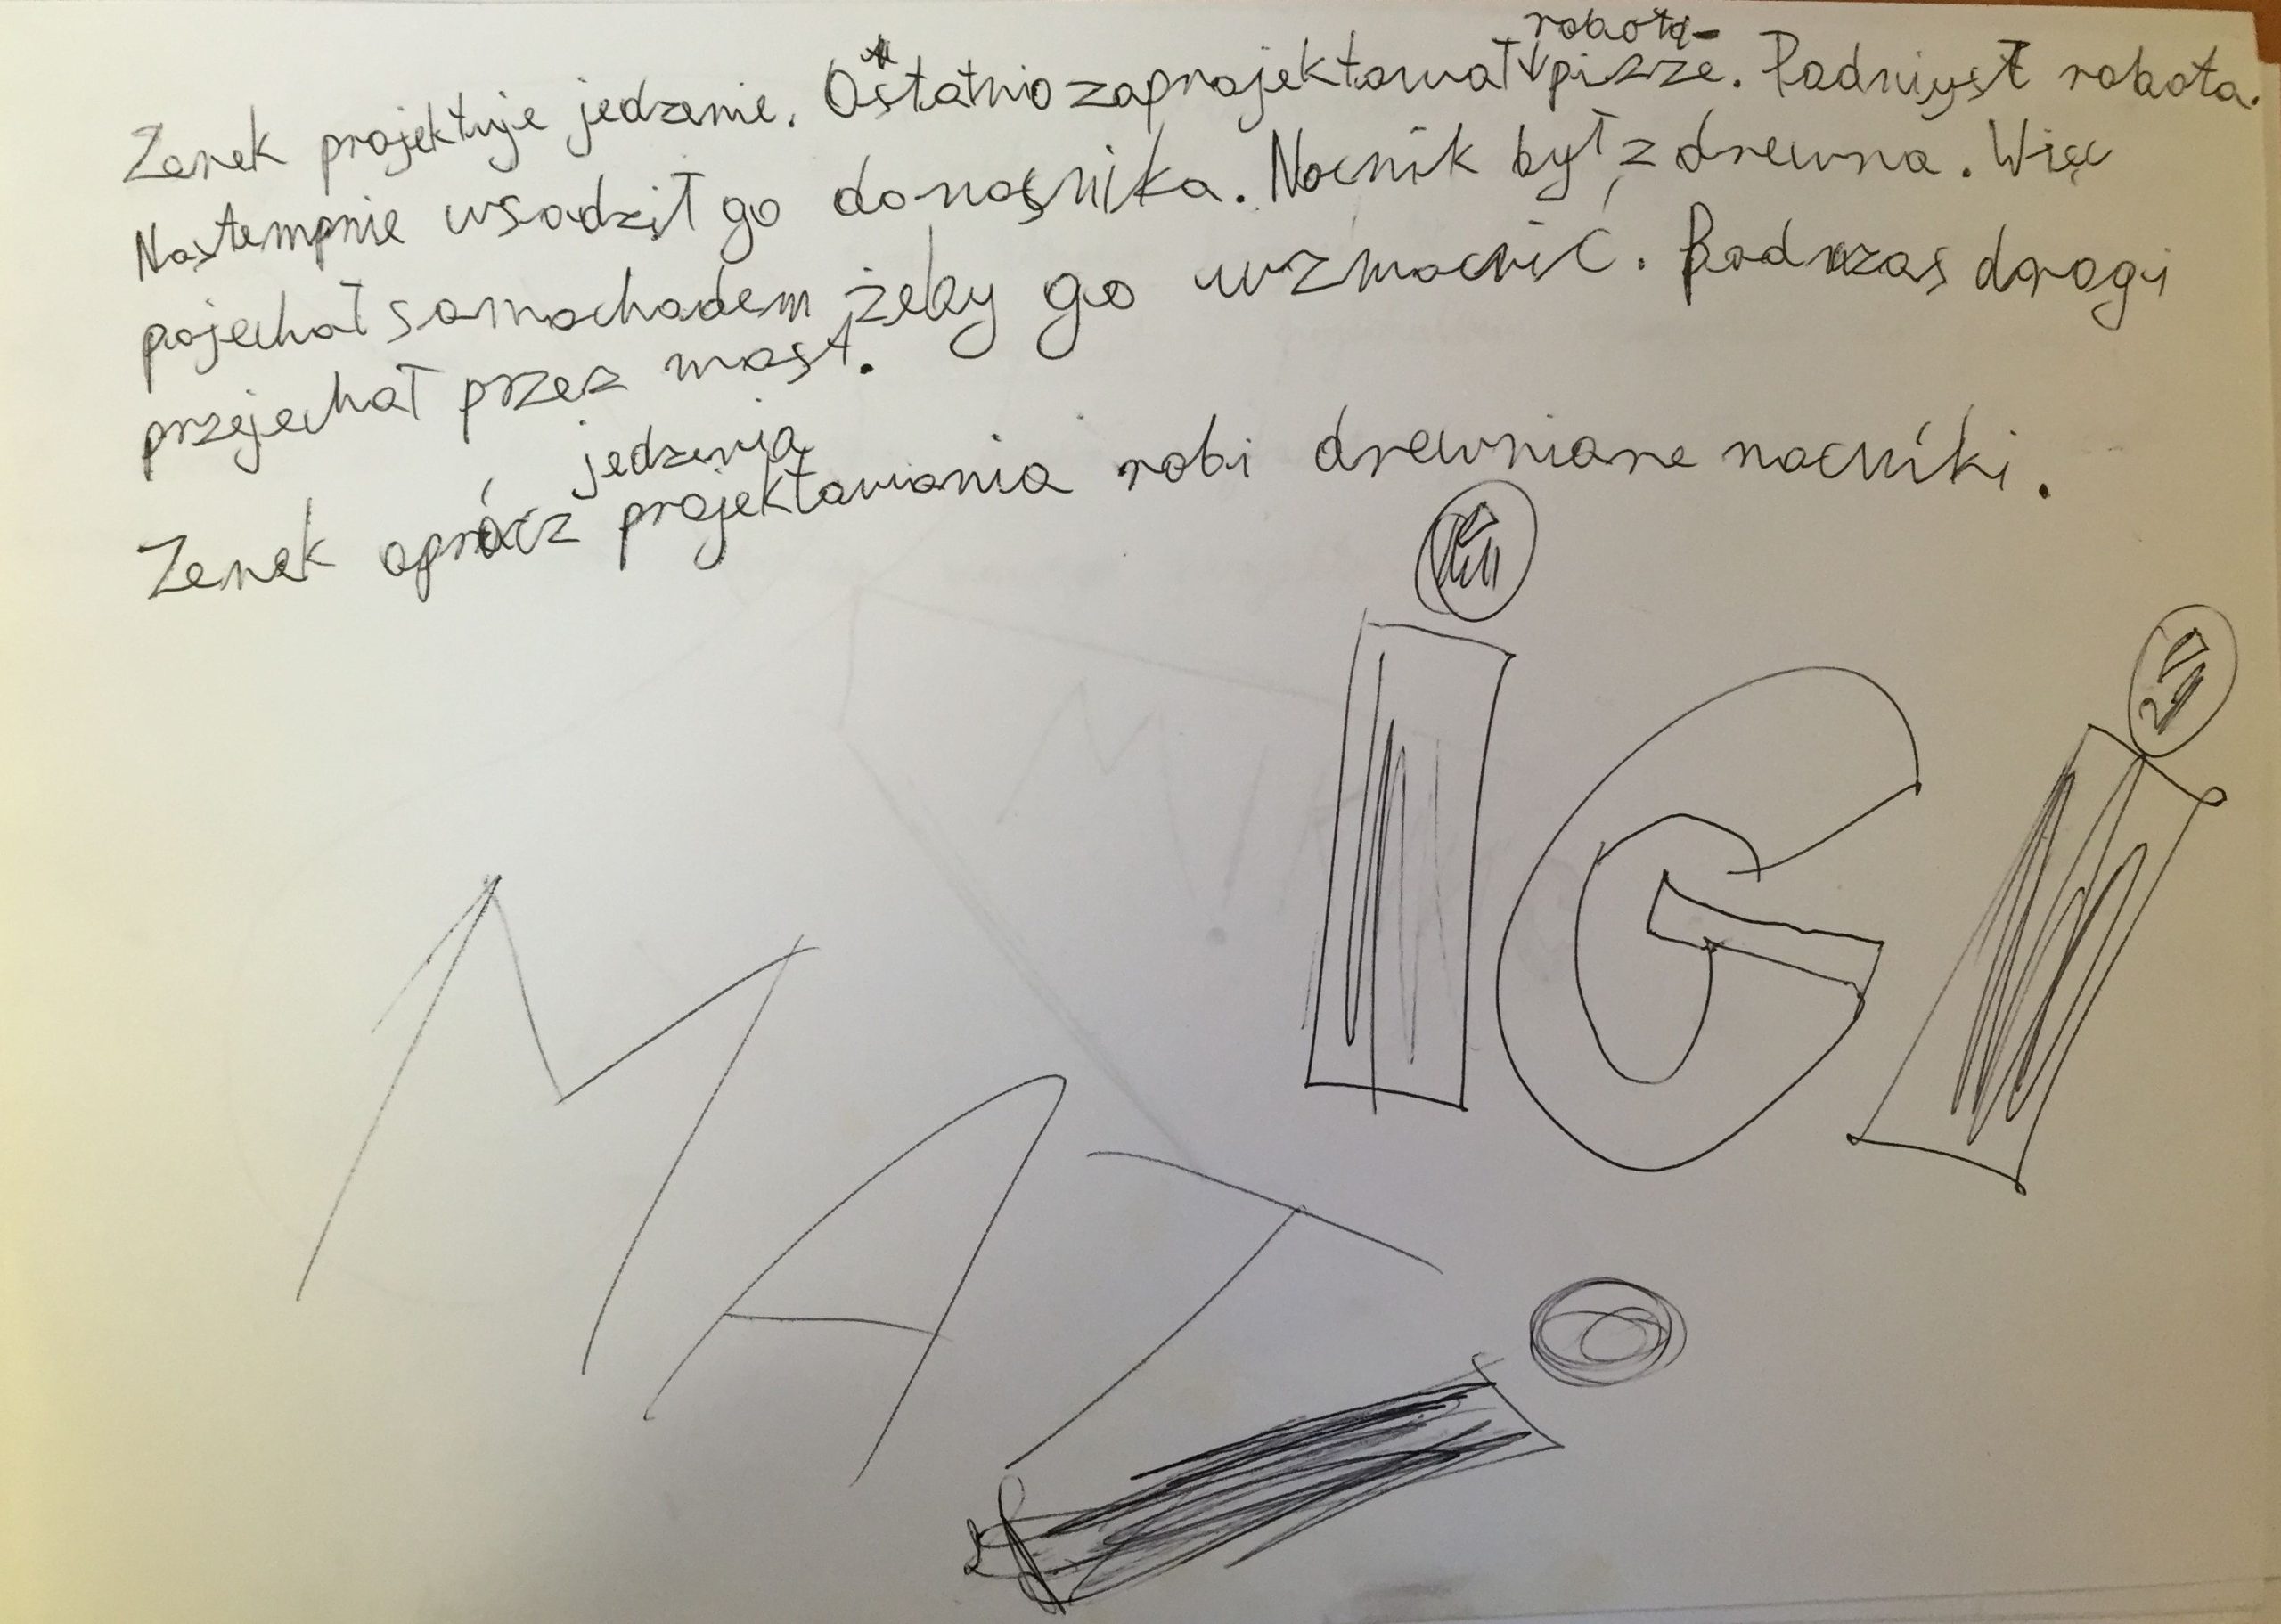 Zenek projektuje jedzenie. Ostatnio zaprojektował robota-pizze. Podniyst robota.
Nastempnie wsadził go do nocnika. Nocnik był z drewna. Więc
pojechał samochodem żeby go wzmocnić. Podczas drogi
przejechał przez most.
Zenek oprócz projektowania jedzenia robi drewniane nocniki.
iGi
MATi